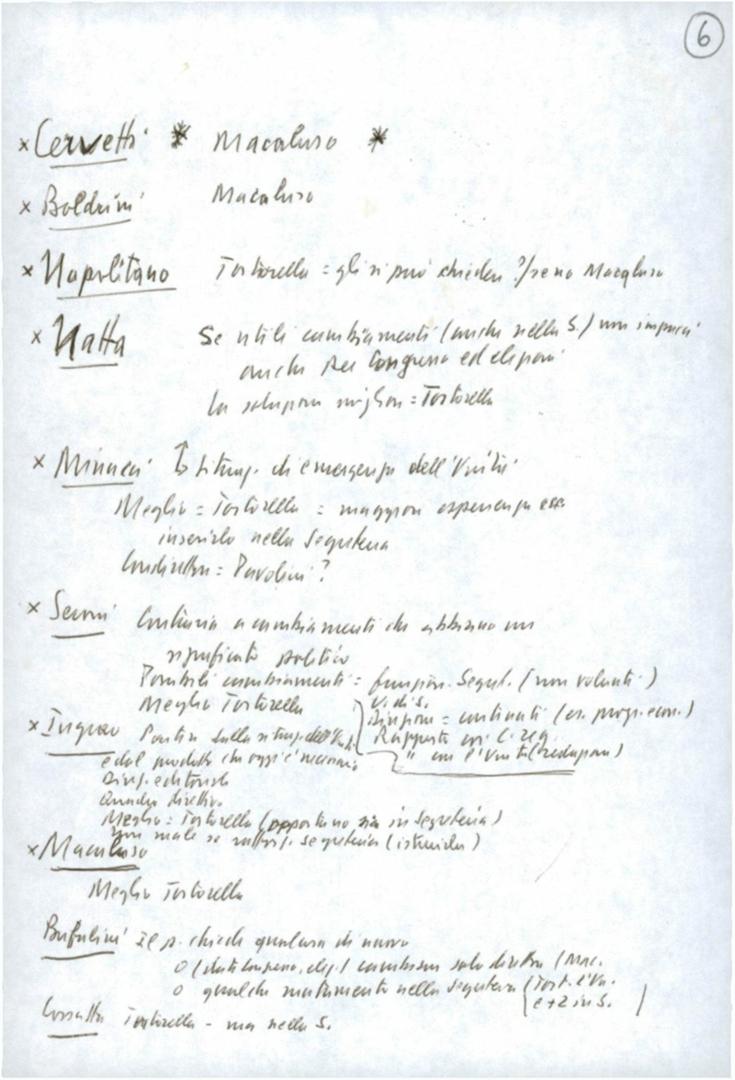 6
x Cervetti * Macaluso *
x Boldrini Macaluso
x Napolitano Tortorella = gli si può chiedere? / se no Macaluso
x Natta Se utili cambiamenti (anche nella S.) non
anche per Congresso ed elezioni
La soluzione migliore = Tortorella
x Minucci di emergenza dell'Unità
Meglio = Tortorella = maggiore esperienza
inserirlo nella Segreteria
Condirettore = Pavolini?
x Seroni Contraria a cambiamenti che abbiano un
significato politico
Possibili cambiamenti = funzion. Segret. (non valuati)
Meglio Tortorella
V. di S.
Direzione = continuità (es. progr. econ.)
Rapporto con C. reg.
" con l'Unità (redazioni)
x Ingrao Partire dalla situaz. dell'Unità
e dal prodotto che oggi è necessario
Dirig. editoriale
Quadro direttivo
Meglio = Tortorella (opportuno sia in Segreteria)
Non male se segreteria
x Macaluso
Meglio Tortorella
Bufalini Il p. chiede qualcosa di nuovo
o (dati congresso, elez.) cambiare solo direttore (Mac.
o qualche mutamento nella segreteria (Tort. l'Un.
e + 2 in S.)
Cossutta Tortorella - ma nella S.